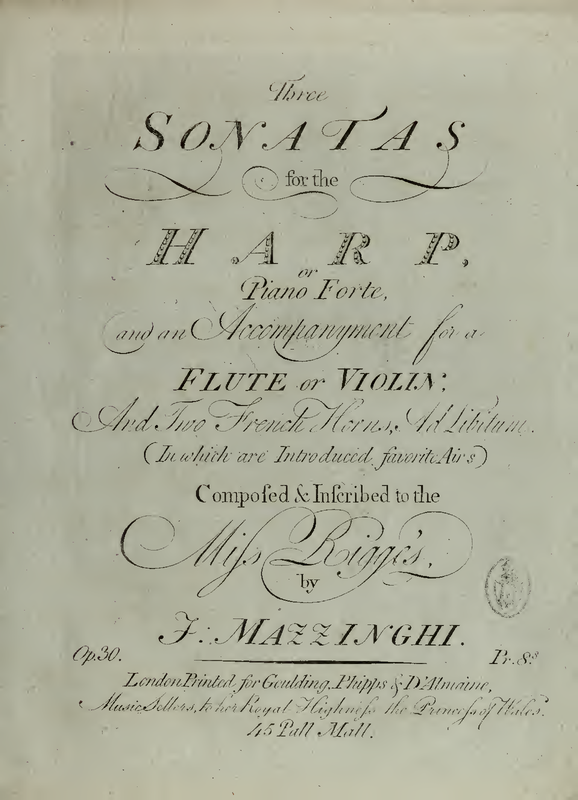 Three
SONATAS
for the
HARP,
or
Piano Forte,
and an Accompanyment for a
FLUTE or VIOLIN;
And Two French Horns, Ad Libitum.
(In which are Introduced favorite Airs)
Compoſed & Inſcribed to the
Miſs Rigge's,
by
J. MAZZINGHI.
Op.30. Pr. 8.s
London Printed for Goulding, Phipps & D'Almaine,
Music Sellers, to her Royal Highneſs the Princeſs of Wales.
45 Pall Mall.